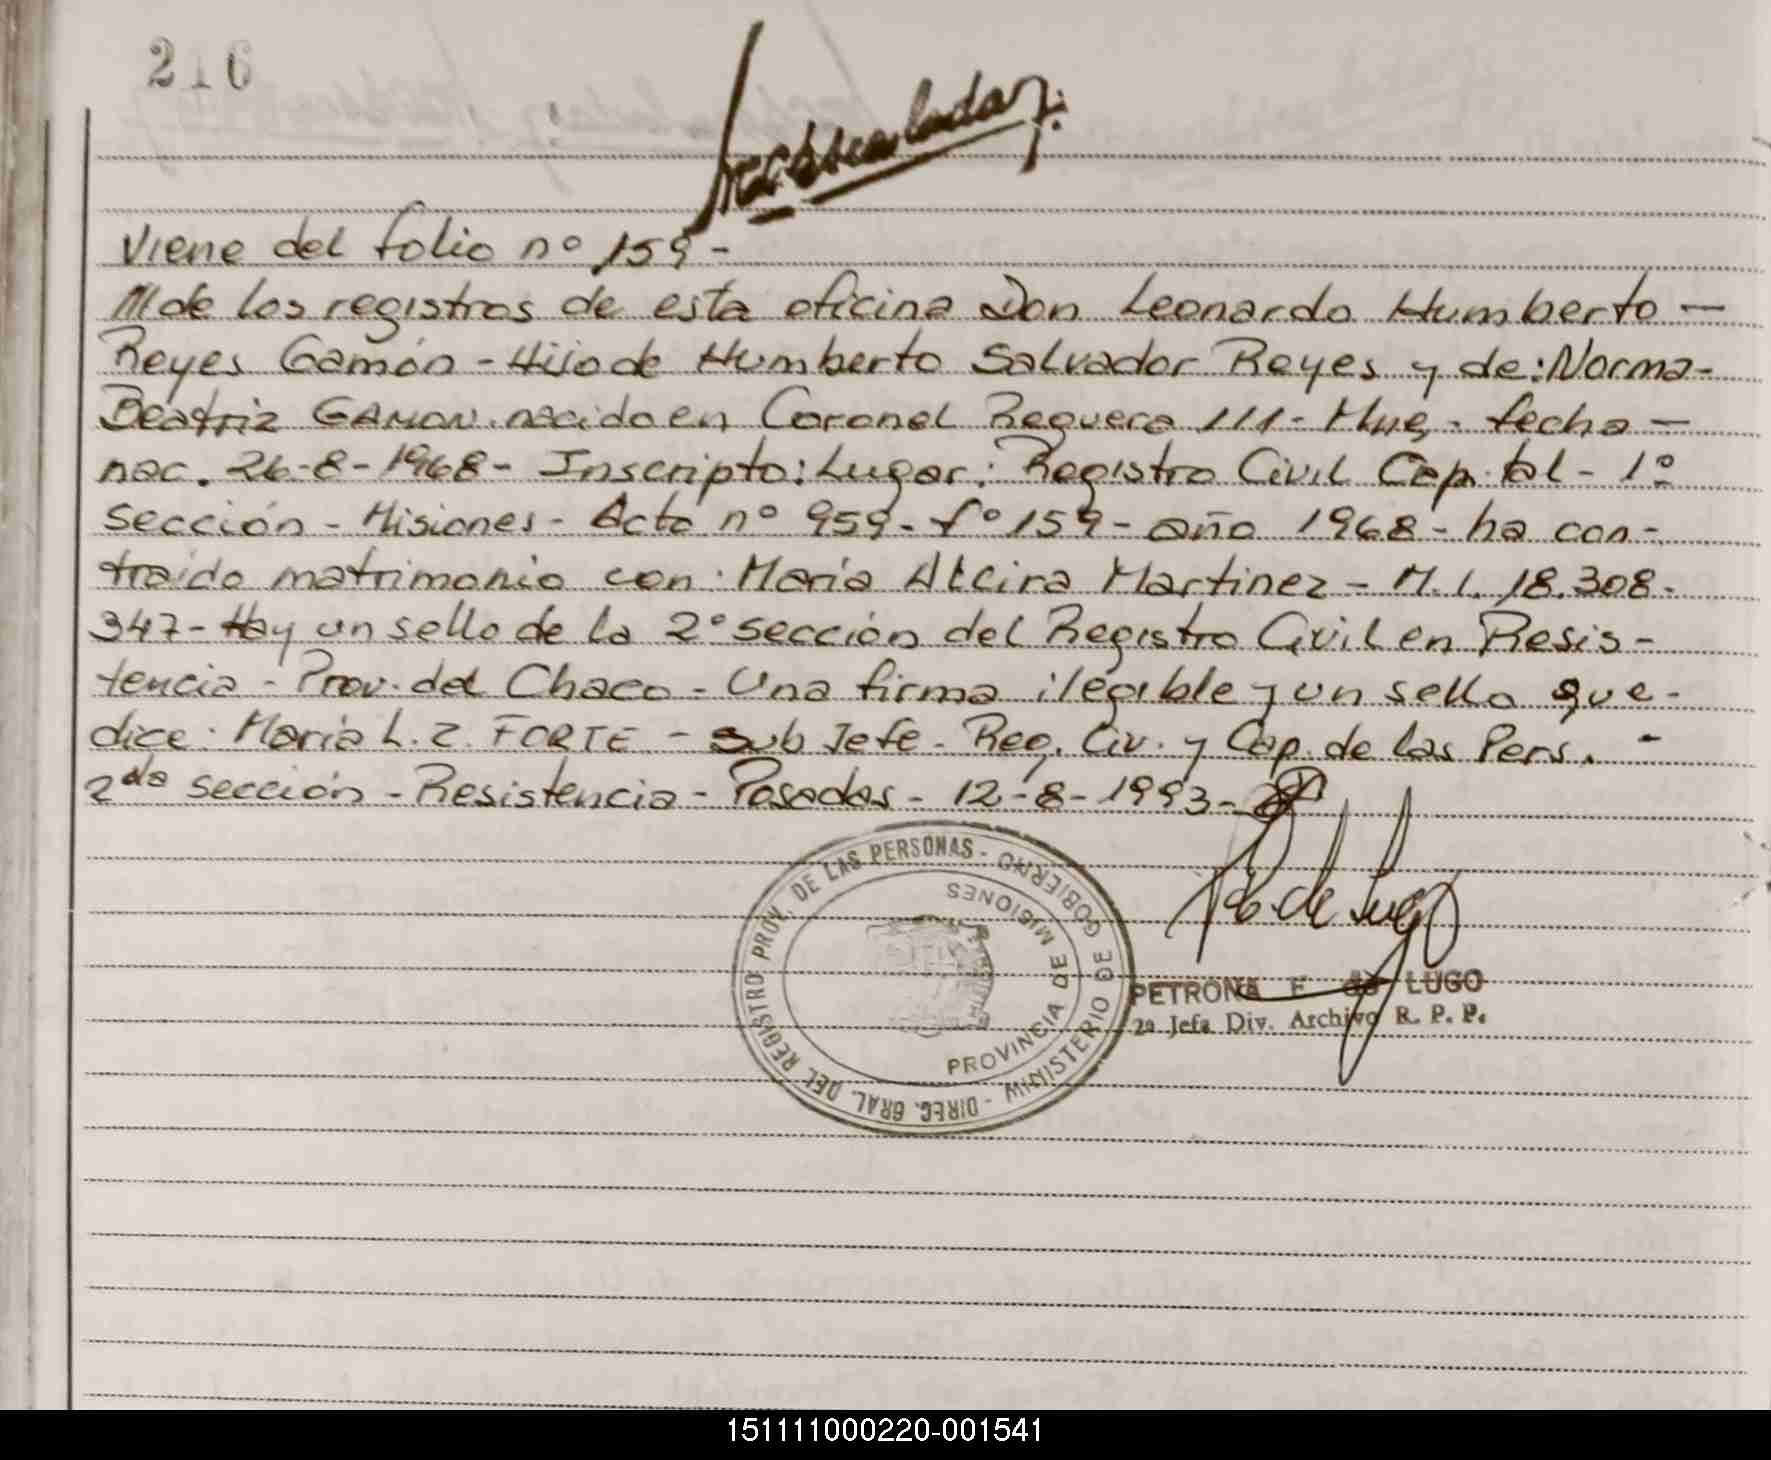 216
Viene del folio nº 159 -
///de los registros de esta oficina Don Leonardo Humberto -
Reyes Gamón - Hijo de Humberto Salvador Reyes y de: Norma -
Beatriz GAMON. nacido en Coronel Reguera 111 - fecha -
nac. 26-8-1968 - Inscripto: Lugar: Registro Civil Capital - 1º
sección - Misiones - Acta nº 959 - fº 159 - año 1968 - ha con-
traido matrimonio con: María Alcira Martinez - M.I. 18.308.
347 - Hay un sello de la 2º sección del Registro Civil en Resis-
tencia - Prov. del Chaco - Una firma ilegible y un sello que -
dice: María L. Z. FORTE - Sub Jefe - Reg. Civ. y Cap. de las Pers. -
2da sección - Resistencia - Posadas - 12-8-1993 -
DIREC. GRAL. DEL REGISTRO PROV. DE LAS PERSONAS - MINISTERIO DE GOBIERNO
PROVINCIA DE MISIONES
de Lugo
PETRONA F. de LUGO
2a Jefa Div. Archivo R. P. P.
151111000220-001541